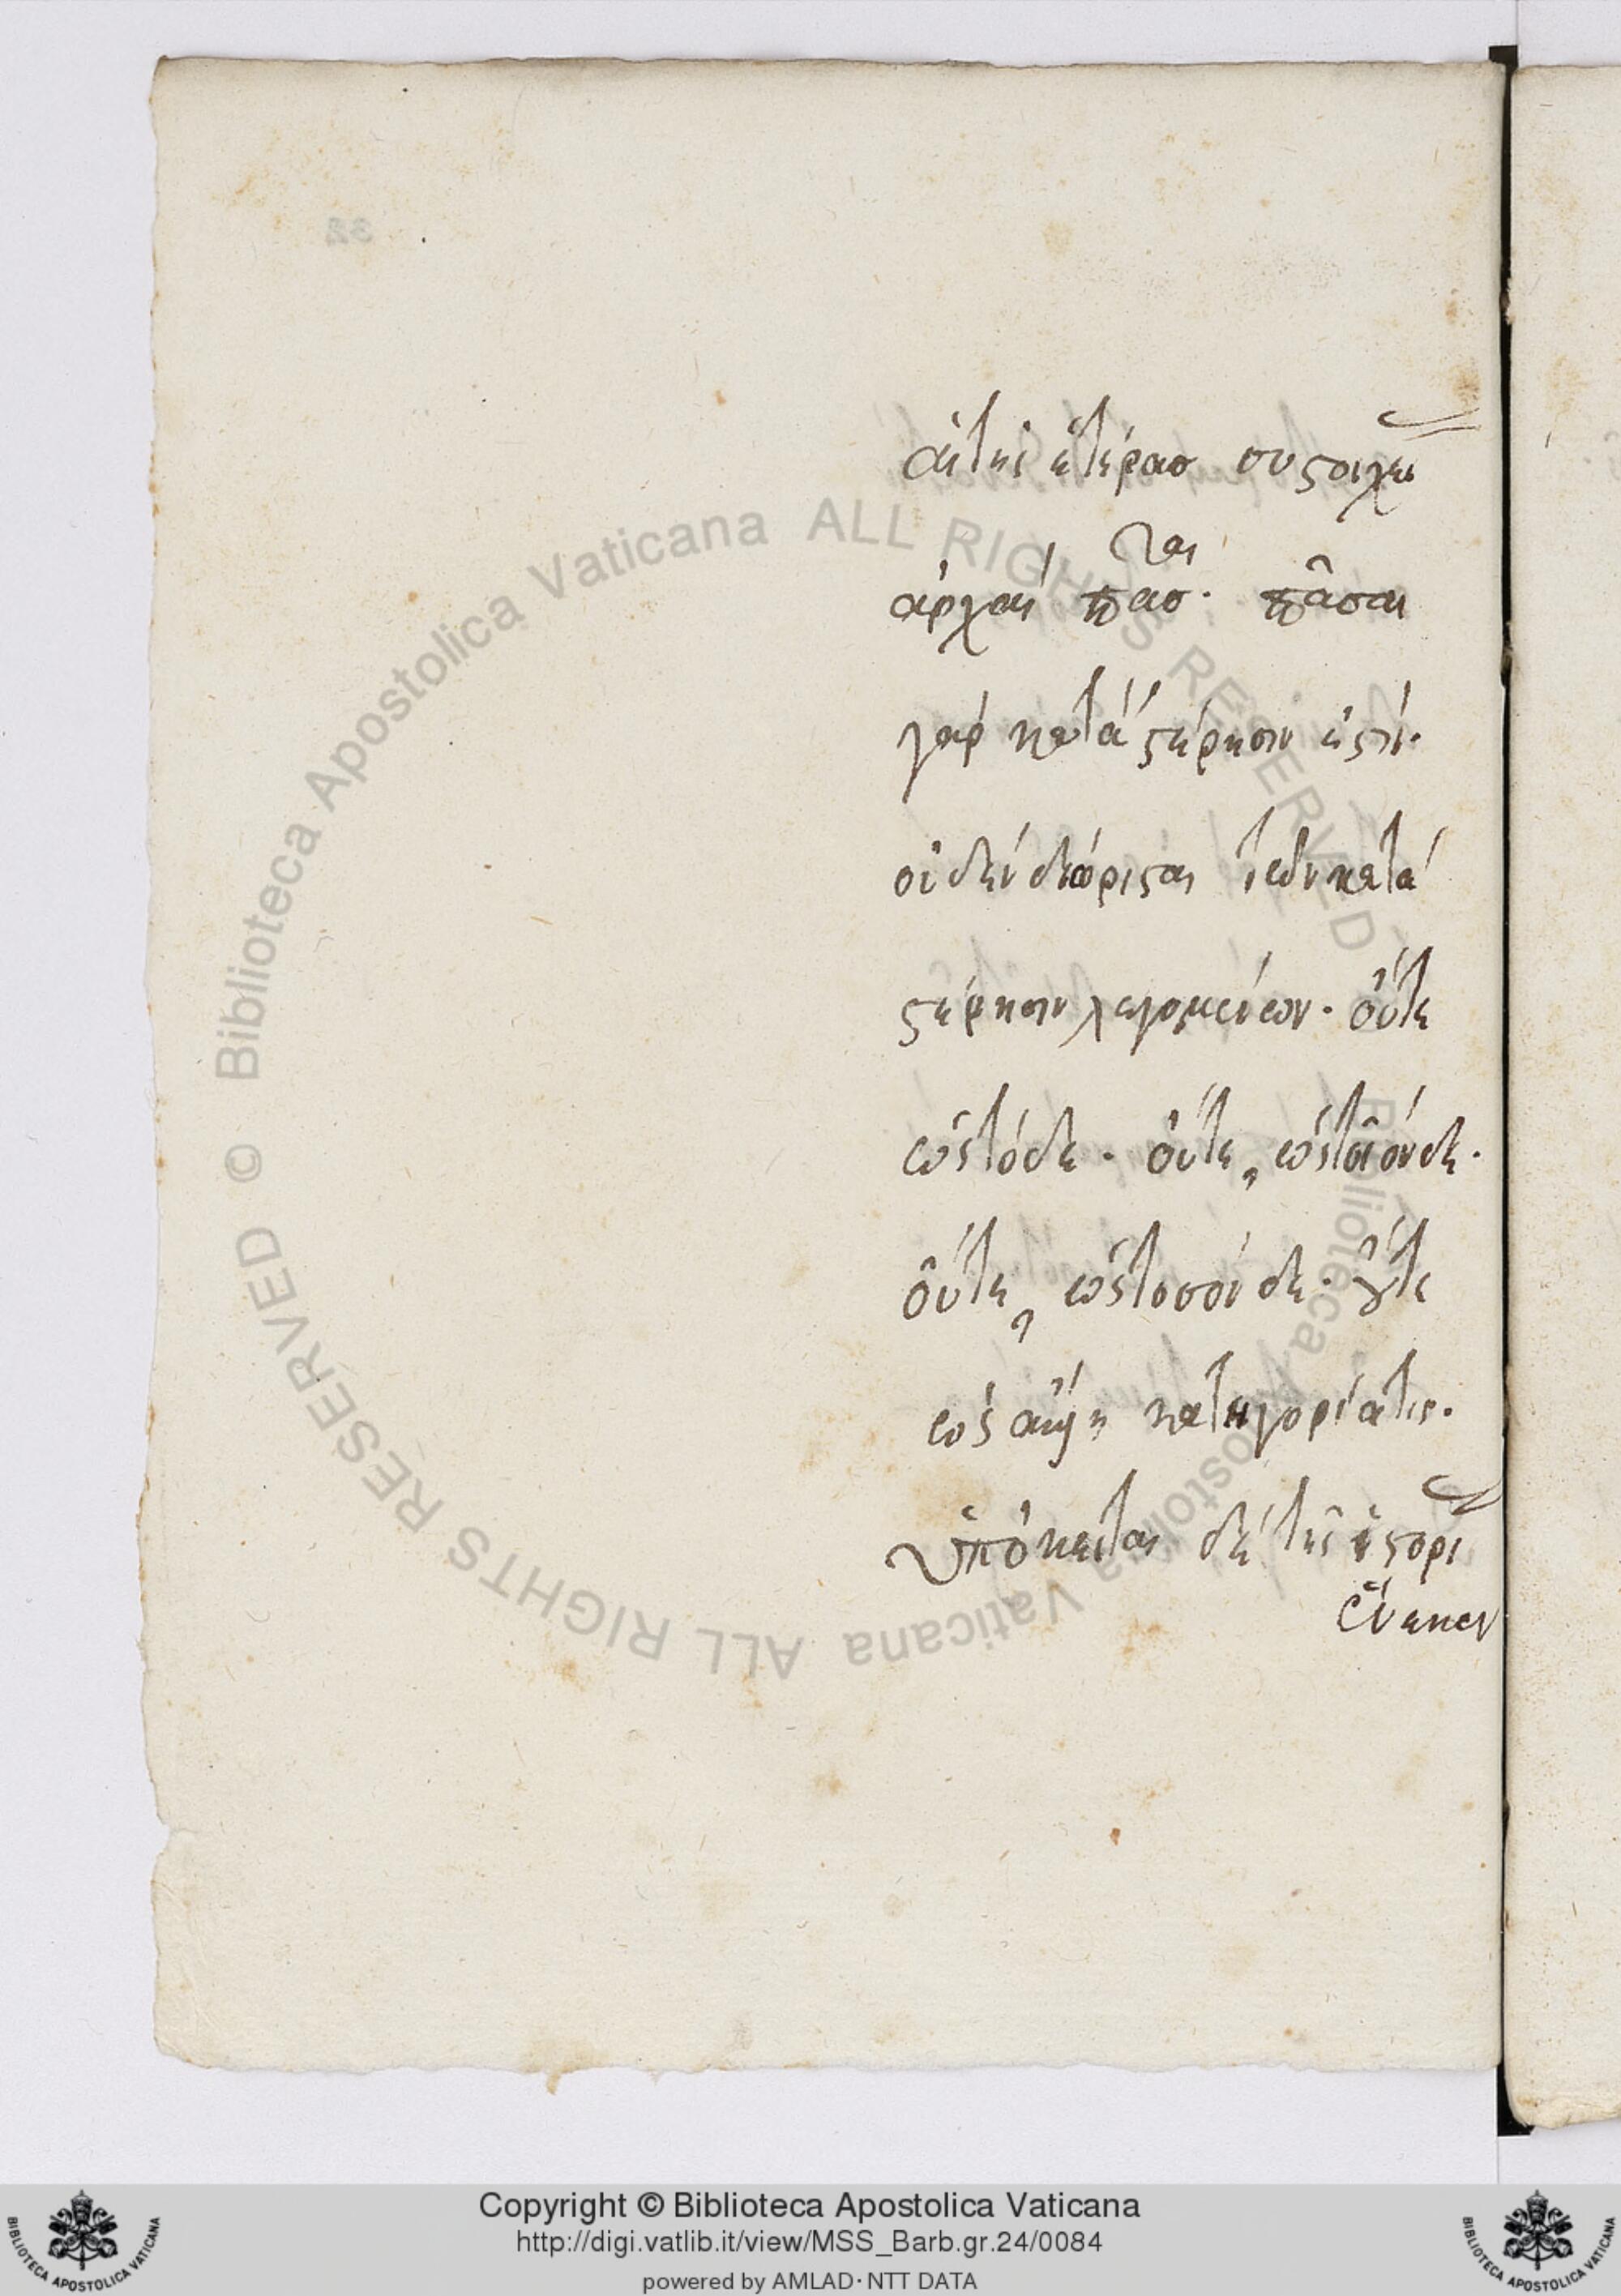 αἱ τῆς ἑτέρας συστοιχί
ἀρχαὶ πᾶσαι. πᾶσαι
γὰρ κατὰ στέρησιν εἰσίν.
οὐδὲν διώρισται τῶν κατὰ
στέρησιν λεγομένων. οὔτε
ὡς τόδε. οὔτε, ὡς τοιόνδε.
οὔτε, ὡς τοσόνδε. οὔτε
ὡς κατηγορία τις.
ὑπόκειται δὲ τῆς ἱστορί
ἕνεκεν
32
Biblioteca Apostolica Vaticana ALL RIGHTS RESERVED ©
Biblioteca Apostolica Vaticana ALL RIGHTS RESERVED
Copyright © Biblioteca Apostolica Vaticana
http://digi.vatlib.it/view/MSS_Barb.gr.24/0084
powered by AMLAD·NTT DATA
BIBLIOTECA APOSTOLICA VATICANA
BIBLIOTECA APOSTOLICA VATICANA